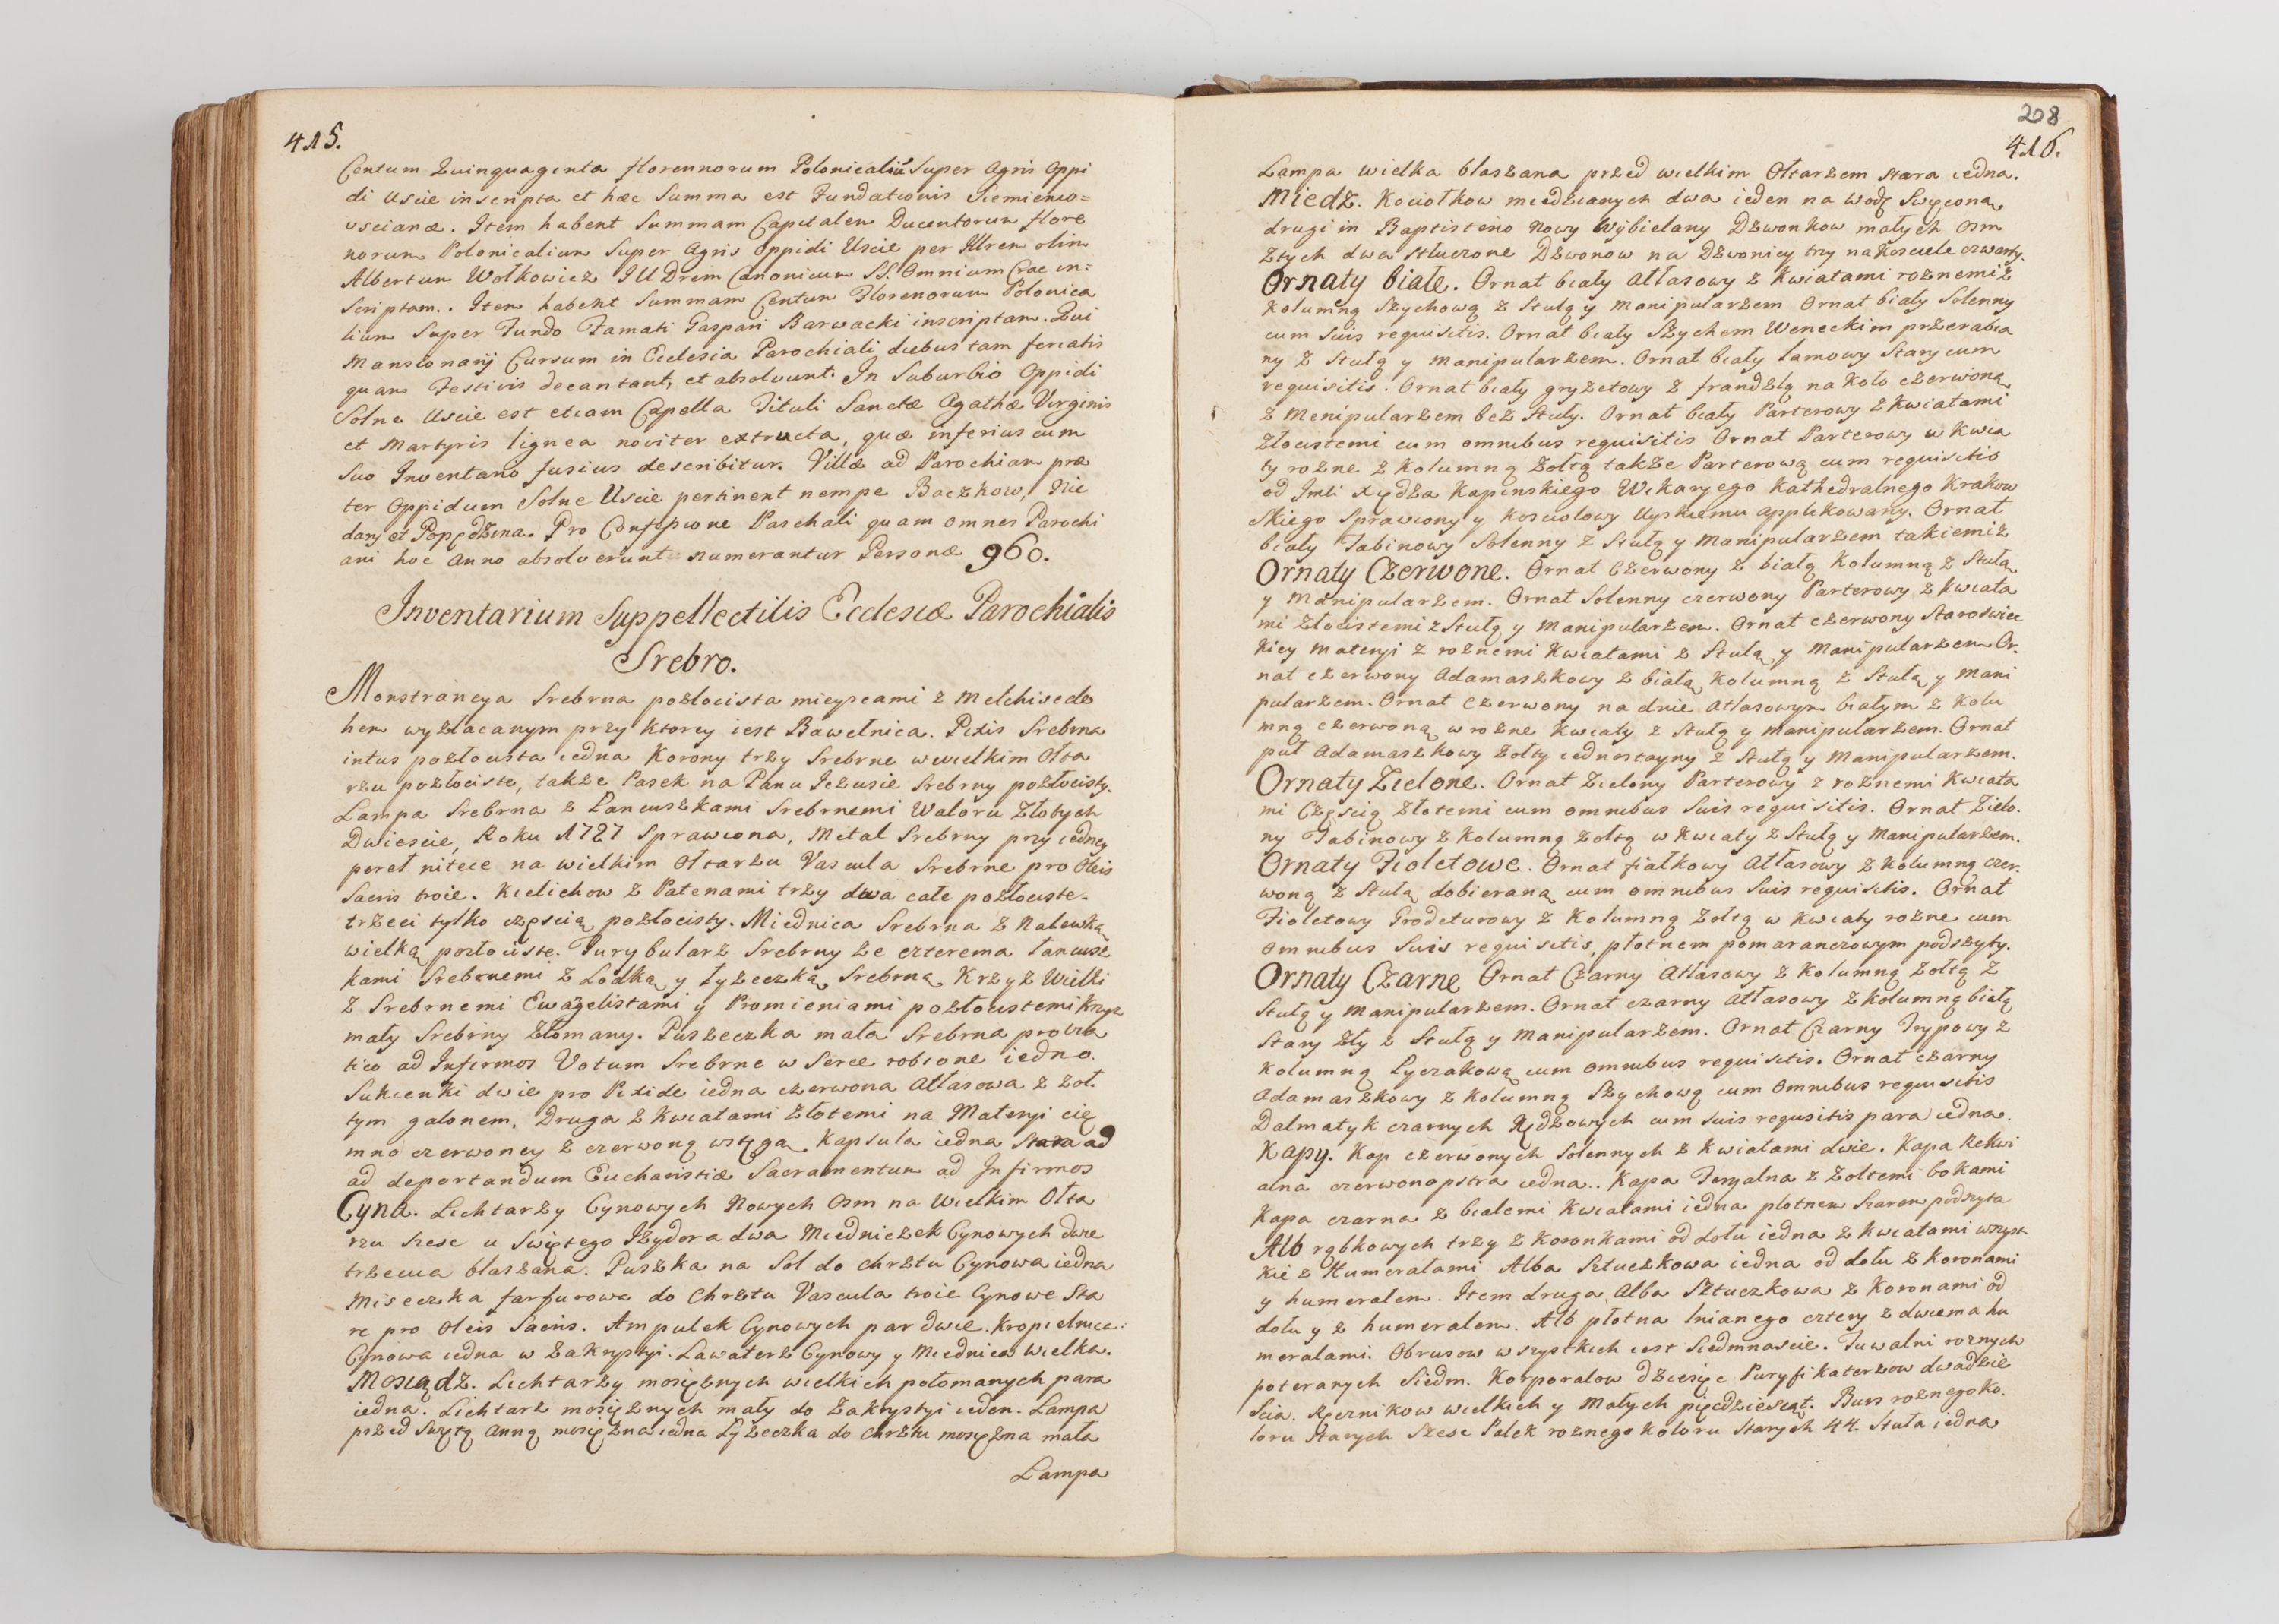 415.
Centum Quinquaginta florennorum Polonicaliũ Super Agris Oppi
di Uscie inscripta et hæc Summa est Fundationis Siemieno=
uscianæ. Item habent Summam Capitalem Ducentorum flore
norum Polonicalium Super Agris Oppidi Uscie per Illrem olim
Albertum Wołkowicz IUDrem Canonicum SS. Omnium Crac in=
scriptam.. Item habent Summam Centum Florenorum Polonica
lium Super Fundo Famati Gaspari Barwacki inscriptam. Qui
Mansionarij Cursum in Ecclesia Parochiali diebus tam feriatis
quam Festivis decantant, et absolvunt. In Suburbio Oppidi
Solne Uscie est etiam Capella Tituli Sanctæ Agathæ Virginis
et Martyris lignea noviter extructa, quæ inferius cum
Suo Inventario fusius describitur. Villæ ad Parochiam præ
ter Oppidum Solne Uscie pertinent nempe Baczkow, Nie
dary et Popędzina. Pro Confessione Paschali quam omnes Parochi
ani hoc Anno absolverunt numerantur Personæ 960.
Inventarium Suppellectilis Ecclesiæ Parochialis
Srebro.
Monstrancya Srebrna pozłocista mieyscami z Melchisede
hem wyzłacanym przy ktorey iest Bawełnica. Pixis Srebrna
intus pozłocista iedna Korony trzy Srebrne w wielkim Ołta
rzu pozłociste, także Pasek na Panu Jezusie Srebrny pozłocisty.
Lampa Srebrna z Łancuszkami Srebrnemi Waloru Złotych
Dwiescie, Roku 1727 Sprawiona, Metal Srebrny przy iedney
pereł nitece na wielkim Ołtarzu Vascula Srebrne pro Oleis
Sacris troie. Kielichow z Patenami trzy dwa całe pozłociste
trzeci tylko częscią pozłocisty. Miednica Srebrna z Nalewką
wielką pozłociste. Turybularz Srebrny ze czterema łancusz
kami Srebrnemi z Łodką y Łyzeczką Srebrną Krzyz Wielki
z Srebrnemi Ewãgelistami y Promieniami pozłocistemi Krzyz
mały Srebrny złomany. Puszeczka mała Srebrna pro Via
tico ad Infirmos Votum Srebrne w Serce robione iedno.
Sukienki dwie pro Pixide iedna czerwona Atłasowa z zoł.
tym galonem. Druga z kwiatami złotemi na Materyi cie
mno czerwoney z czerwoną wstęgą Kapsula iedna Stara ad
ad deportandum Eucharistiæ Sacramentum ad Infirmos
Cyna. Lichtarzy Cynowych Nowych Osm na Wielkim Ołta
rzu szesc u Swiętego Izydora dwa Miedniczek Cynowych dwie
trzecia blaszana. Puszka na Sol do chrztu Cynowa iedna
Miseczka farfurowa do Chrztu Vascula troie Cynowe Sta
re pro Oleis Sacris. Ampulek Cynowych par dwie. Kropielnica
Cynowa iedna w Zakrystyi. Lawaterz Cynowy y Miednica Wielka.
Mosiądz. Lichtarzy mosięznych wielkich połomanych para
iedna. Lichtarz mosięznych mały do Zakrystyi ieden. Lampa
przed Swiętą Anną mosięzna iedna Łyzeczka do Chrztu mosięzna mała
Lampa
208
416.
Lampa wielka blaszana przed wielkim Ołtarzem stara iedna.
Miedz. Kociołkow miedzianych dwa ieden na Wodę Swięconą
drugi in Baptisterio Nowy Wybielany Dzwonkow małych Osm
Ztych dwa stłuczone Dzwonow na Dzwonicy trzy na Kosciele czwarty.
Ornaty białe. Ornat biały Atłasowy z kwiatami roznemi z
Kolumną Szychową z Stułą y manipularzem Ornat biały Solenny
cum suis requisitis. Ornat biały Szychem Weneckim przerabia
ny z Stułą y manipularzem. Ornat biały lamowy Stary cum
requisitis. Ornat biały gryzetowy z frandzlą na koło czerwoną
z Menipularzem bez Stuły. Ornat biały Parterowy z kwiatami
złocistemi cum omnibus requisitis Ornat Parterowy w kwia
ty rozne z kolumną zołtą także Parterową cum requisitis
od Imći Xiędza Kapinskiego Wikaryego Kathedralnego Krakow
skiego Sprawiony y kosciołowy Uyskiemu applikowany. Ornat
biały Tabinowy Solenny z Stułą y Manipularzem takiemiz
Ornaty Czerwone. Ornat Czerwony z białą Kolumną z Stułą
y Manipularzem. Ornat Solenny czerwony Parterowy z kwiata
mi złocistemi z Stułą y Manipularzem. Ornat czerwony Staroswiec
kiey materyi z roznemi kwiatami z Stułą y Manipularzem Or.
nat czerwony Adamaszkowy z białą Kolumną z Stułą y Mani
pularzem. Ornat Czerwony na dnie Atłasowym białym z kolu
mną czerwoną w rozne kwiaty z Stułą y Manipularzem. Ornat
puł Adamaszkowy zołty iednostayny z Stułą y Manipularzem.
Ornaty Zielone. Ornat Zielony Parterowy z roznemi kwiata
mi Częscią złotemi cum omnibus suis requisitis. Ornat Zielo.
ny Tabinowy z Kolumną zołtą w kwiaty z Stułą y Manipularzem.
Ornaty Fioletowe. Ornat fiałkowy Atłasowy z kolumną czer.
woną z Stułą dobieraną cum omnibus suis requisitis. Ornat
Fioletowy Grodeturowy z kolumną zołtą w kwiaty rozne cum
omnibus suis requisitis, płotnem pomaranczowym podszyty.
Ornaty Czarne Ornat Czarny Atłasowy z kolumną zołtą z
Stułą y Manipularzem. Ornat czarny Atłasowy z kolumną białą
Stary zły z Stułą y Manipularzem. Ornat Czarny Trypowy z
Kolumną Łyczakową cum omnibus requisitis. Ornat czarny
Adamaszkowy z kolumną Szychową cum omnibus requisitis
Dalmatyk czarnych Rądzowych cum suis requsitis para iedna.
Kapy. Kap czerwonych Solennych z kwiatami dwie. Kapa Rekwi
alna czerwonopstra iedna.. Kapa Feryalna z zołtemi bokami
Kapa czarna z białemi kwiatami iedna płotnem szarem podszyta
Alb rąbkowych trzy z koronkami od dołu iedna z kwiatami wszyst
kie z Humerałami Alba Sztuczkowa iedna od dołu z koronami
y humerałem. Item druga Alba Sztuczkowa z koronami od
dołu y z humerałem. Alb płotna lnianego cztery z dwiema hu
merałami. Obrusow wszystkich iest Siedmnascie. Tuwalni roznych
poteranych Siedm. Korporałow dziesięc Puryfikaterzow dwadzie
scia. Ręcznikow wielkich y małych pięcdziesiąt. Burs roznego Ko.
loru Starych Szesc Palek roznego koloru Starych 44. Stuła iedna